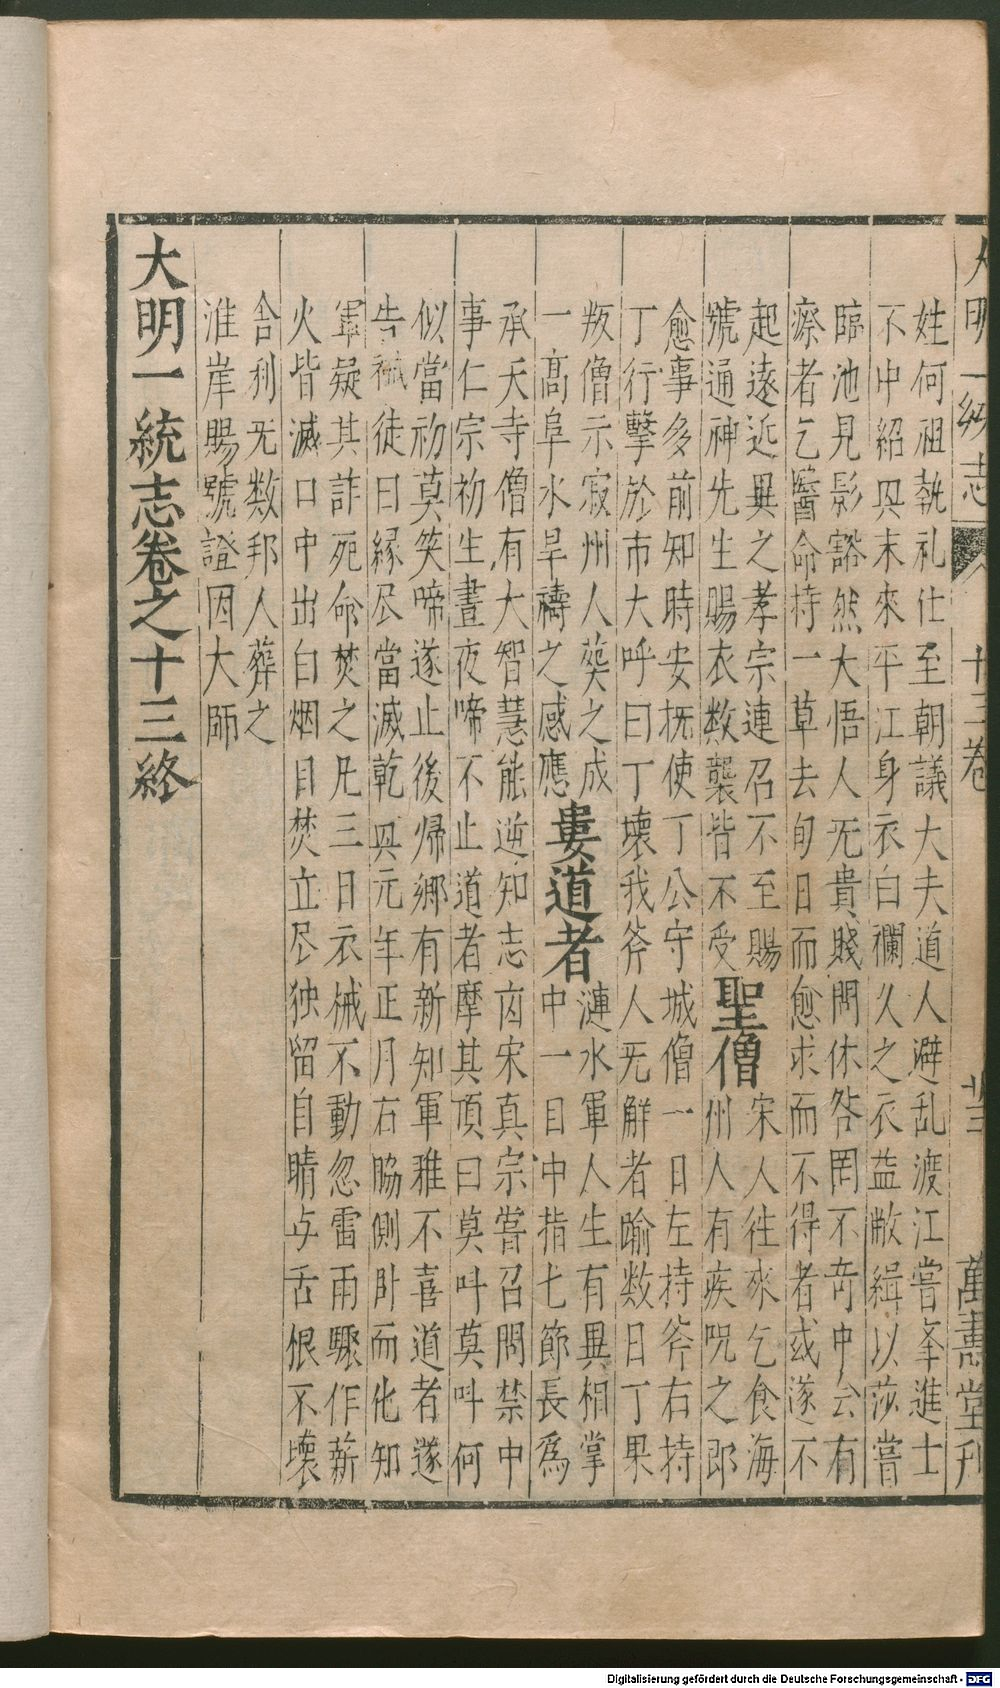 大明一統志 十三卷 廿三 萬壽堂刊
姓何祖執礼仕至朝議大夫道人避乱渡江嘗峯進士
不中紹興末來平江身衣白襴久之衣益敝緝以莎嘗
臨池見影豁然大悟人无貴賤問休咎罔不奇中云有
瘵者乞醫命持一草去旬日而愈求而不得者或遂不
起遠近異之孝宗連召不至賜
號通神先生賜衣数襲皆不受
聖僧
宋人往來乞食海
州人有疾呪之即
愈事多前知時安抚使丁公守城僧一日左持斧右持
丁行擊於市大呼曰丁壞我斧人无解者踰数日丁果
叛僧示寂州人葬之成
一高阜水旱禱之感應
婁道者
漣水軍人生有異相掌
中一目中指七節長爲
承天寺僧有大智慧能逆知志㐫宋真宗嘗召問禁中
事仁宗初生晝夜啼不止道者摩其頂曰莫呌莫呌何
似當初莫笑啼遂止後帰鄉有新知軍雅不喜道者遂
告祇徒曰緣尽當滅乾興元年正月右脇側卧而化知
軍疑其詐死命焚之凡三日衣械不動忽雷雨驟作薪
火皆滅口中出白烟目焚立尽独留自睛与舌根不壞
舎利无数邦人葬之
淮岸賜號證因大師
大明一統志卷之十三終
Digitalisierung gefördert durch die Deutsche Forschungsgemeinschaft - DFG